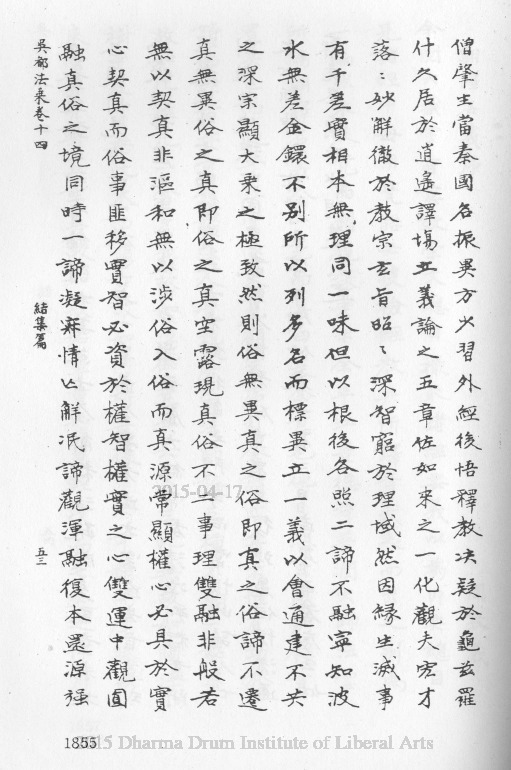 僧肇生當秦國名振異方少習外經後悟釋教决疑於龜茲羅
什久居於逍遙譯場立義論之五章佐如來之一化觀夫宏才
落〻妙解徹於教宗玄旨昭〻深智窮於理域然因緣生滅事
有千差實相本無理同一味但以根後各照二諦不融寧知波
水無差金鐶不别所以列多名而標異立一義以會通建不共
之深宗顯大乘之極致然則俗無異真之俗即真之俗諦不遷
真無異俗之真即俗之真空露現真俗不二事理雙融非般若
無以契真非漚和無以涉俗入俗而真源常顯權心必具於實
心契真而俗事匪移實智必資於權智權實之心雙運中觀圓
融真俗之境同時一諦凝寂情亡解泯諦觀渾融復本還源强
吳都法乘卷十四
結集篇
五三
1855
2015-04-17
2015 Dharma Drum Institute of Liberal Arts